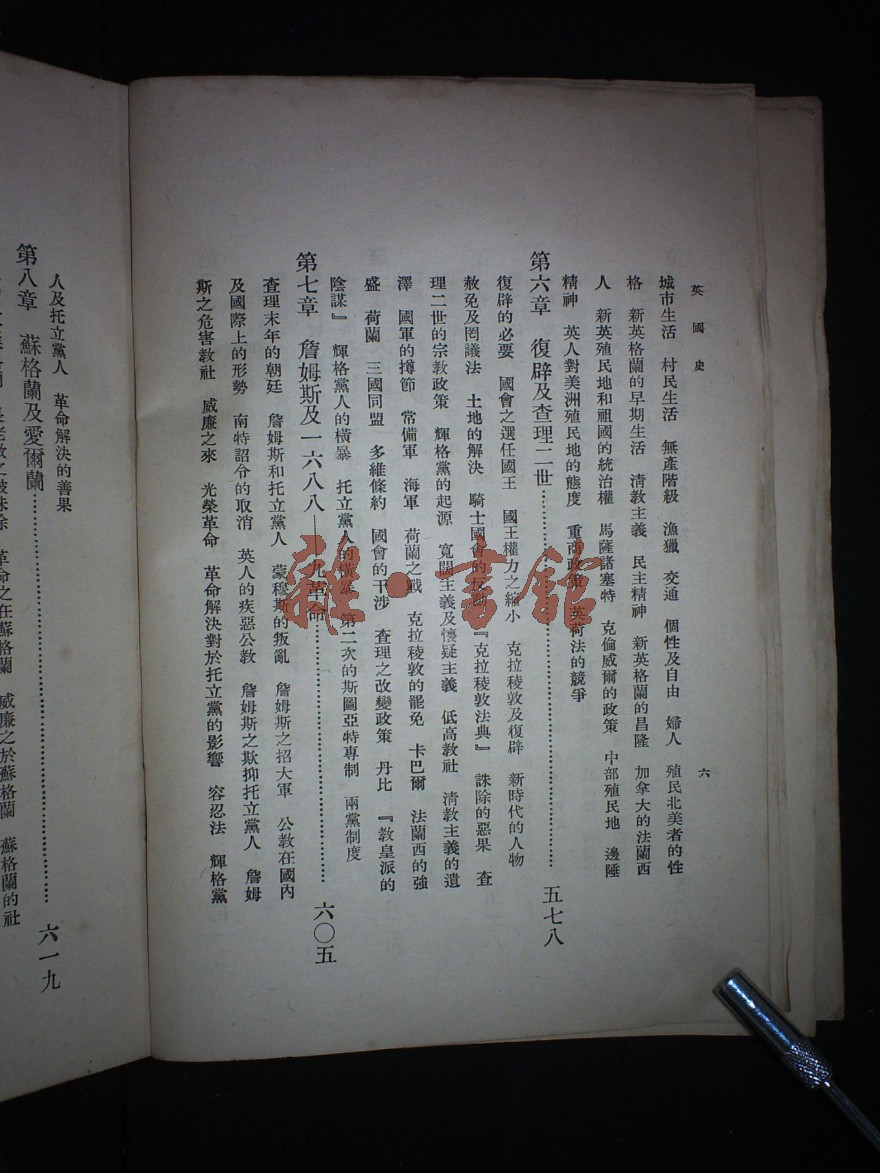 英國史
六
城市生活 村民生活 無產階級 漁獵 交通 個性及自由 婦人 殖民北美者的性
格 新英格蘭的早期生活 清教主義 民主精神 新英格蘭的昌隆 加拿大的法蘭西
人 新英殖民地和祖國的統治權 馬薩諸塞特 克倫威爾的政策 中部殖民地 邊陲
精神 英人對美洲殖民地的態度 重商政策 英荷法的競爭
第六章 復辟及查理二世 五七八
復辟的必要 國會之選任國王 國王權力之縮小 克拉稜敦及復辟 新時代的人物
赦免及罔議法 土地的解決 騎士國會的反動 『克拉稜敦法典』 誅除的惡果 查
理二世的宗教政策 輝格黨的起源 寬闊主義及懷疑主義 低高教社 清教主義的遺
澤 國軍的撙節 常備軍 海軍 荷蘭之戰 克拉稜敦的罷免 卡巴爾 法蘭西的強
盛 荷蘭 三國同盟 多維條約 國會的干涉 查理之改變政策 丹比 『教皇派的
陰謀』 輝格黨人的橫暴 托立黨人的橫暴 第二次的斯圖亞特專制 兩黨制度
第七章 詹姆斯及一六八八——九革命 六〇五
查理末年的朝廷 詹姆斯和托立黨人 蒙穆斯的叛亂 詹姆斯之招大軍 公教在國內
及國際上的形勢 南特詔令的取消 英人的疾惡公教 詹姆斯之欺抑托立黨人 詹姆
斯之危害教社 威廉之來 光榮革命 革命解決對於托立黨的影響 容忍法 輝格黨
人及托立黨人 革命解決的善果
第八章 蘇格蘭及愛爾蘭 六一九
革命之在蘇格蘭 威廉之於蘇格蘭 蘇格蘭的社
雜·書館